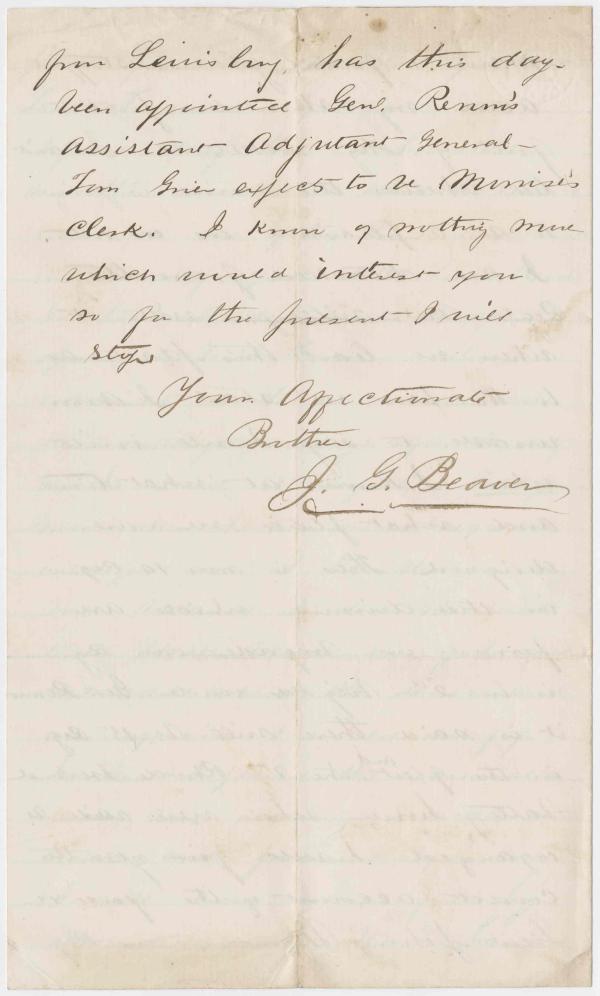 from Lewisburg, has this day
been appointed Gen. Renno's
Assistant Adjutant General—
Tom Grier expects to be
Clerk. I know of nothing more
which would interest you
so for the present I will
stop
Your Affectionate
Brother
J. G. Beaver